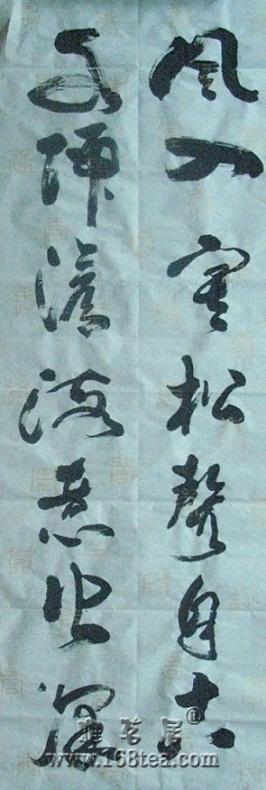 風入寒松聲自古
水歸滄海意皆深
茗居®
www.168tea.com